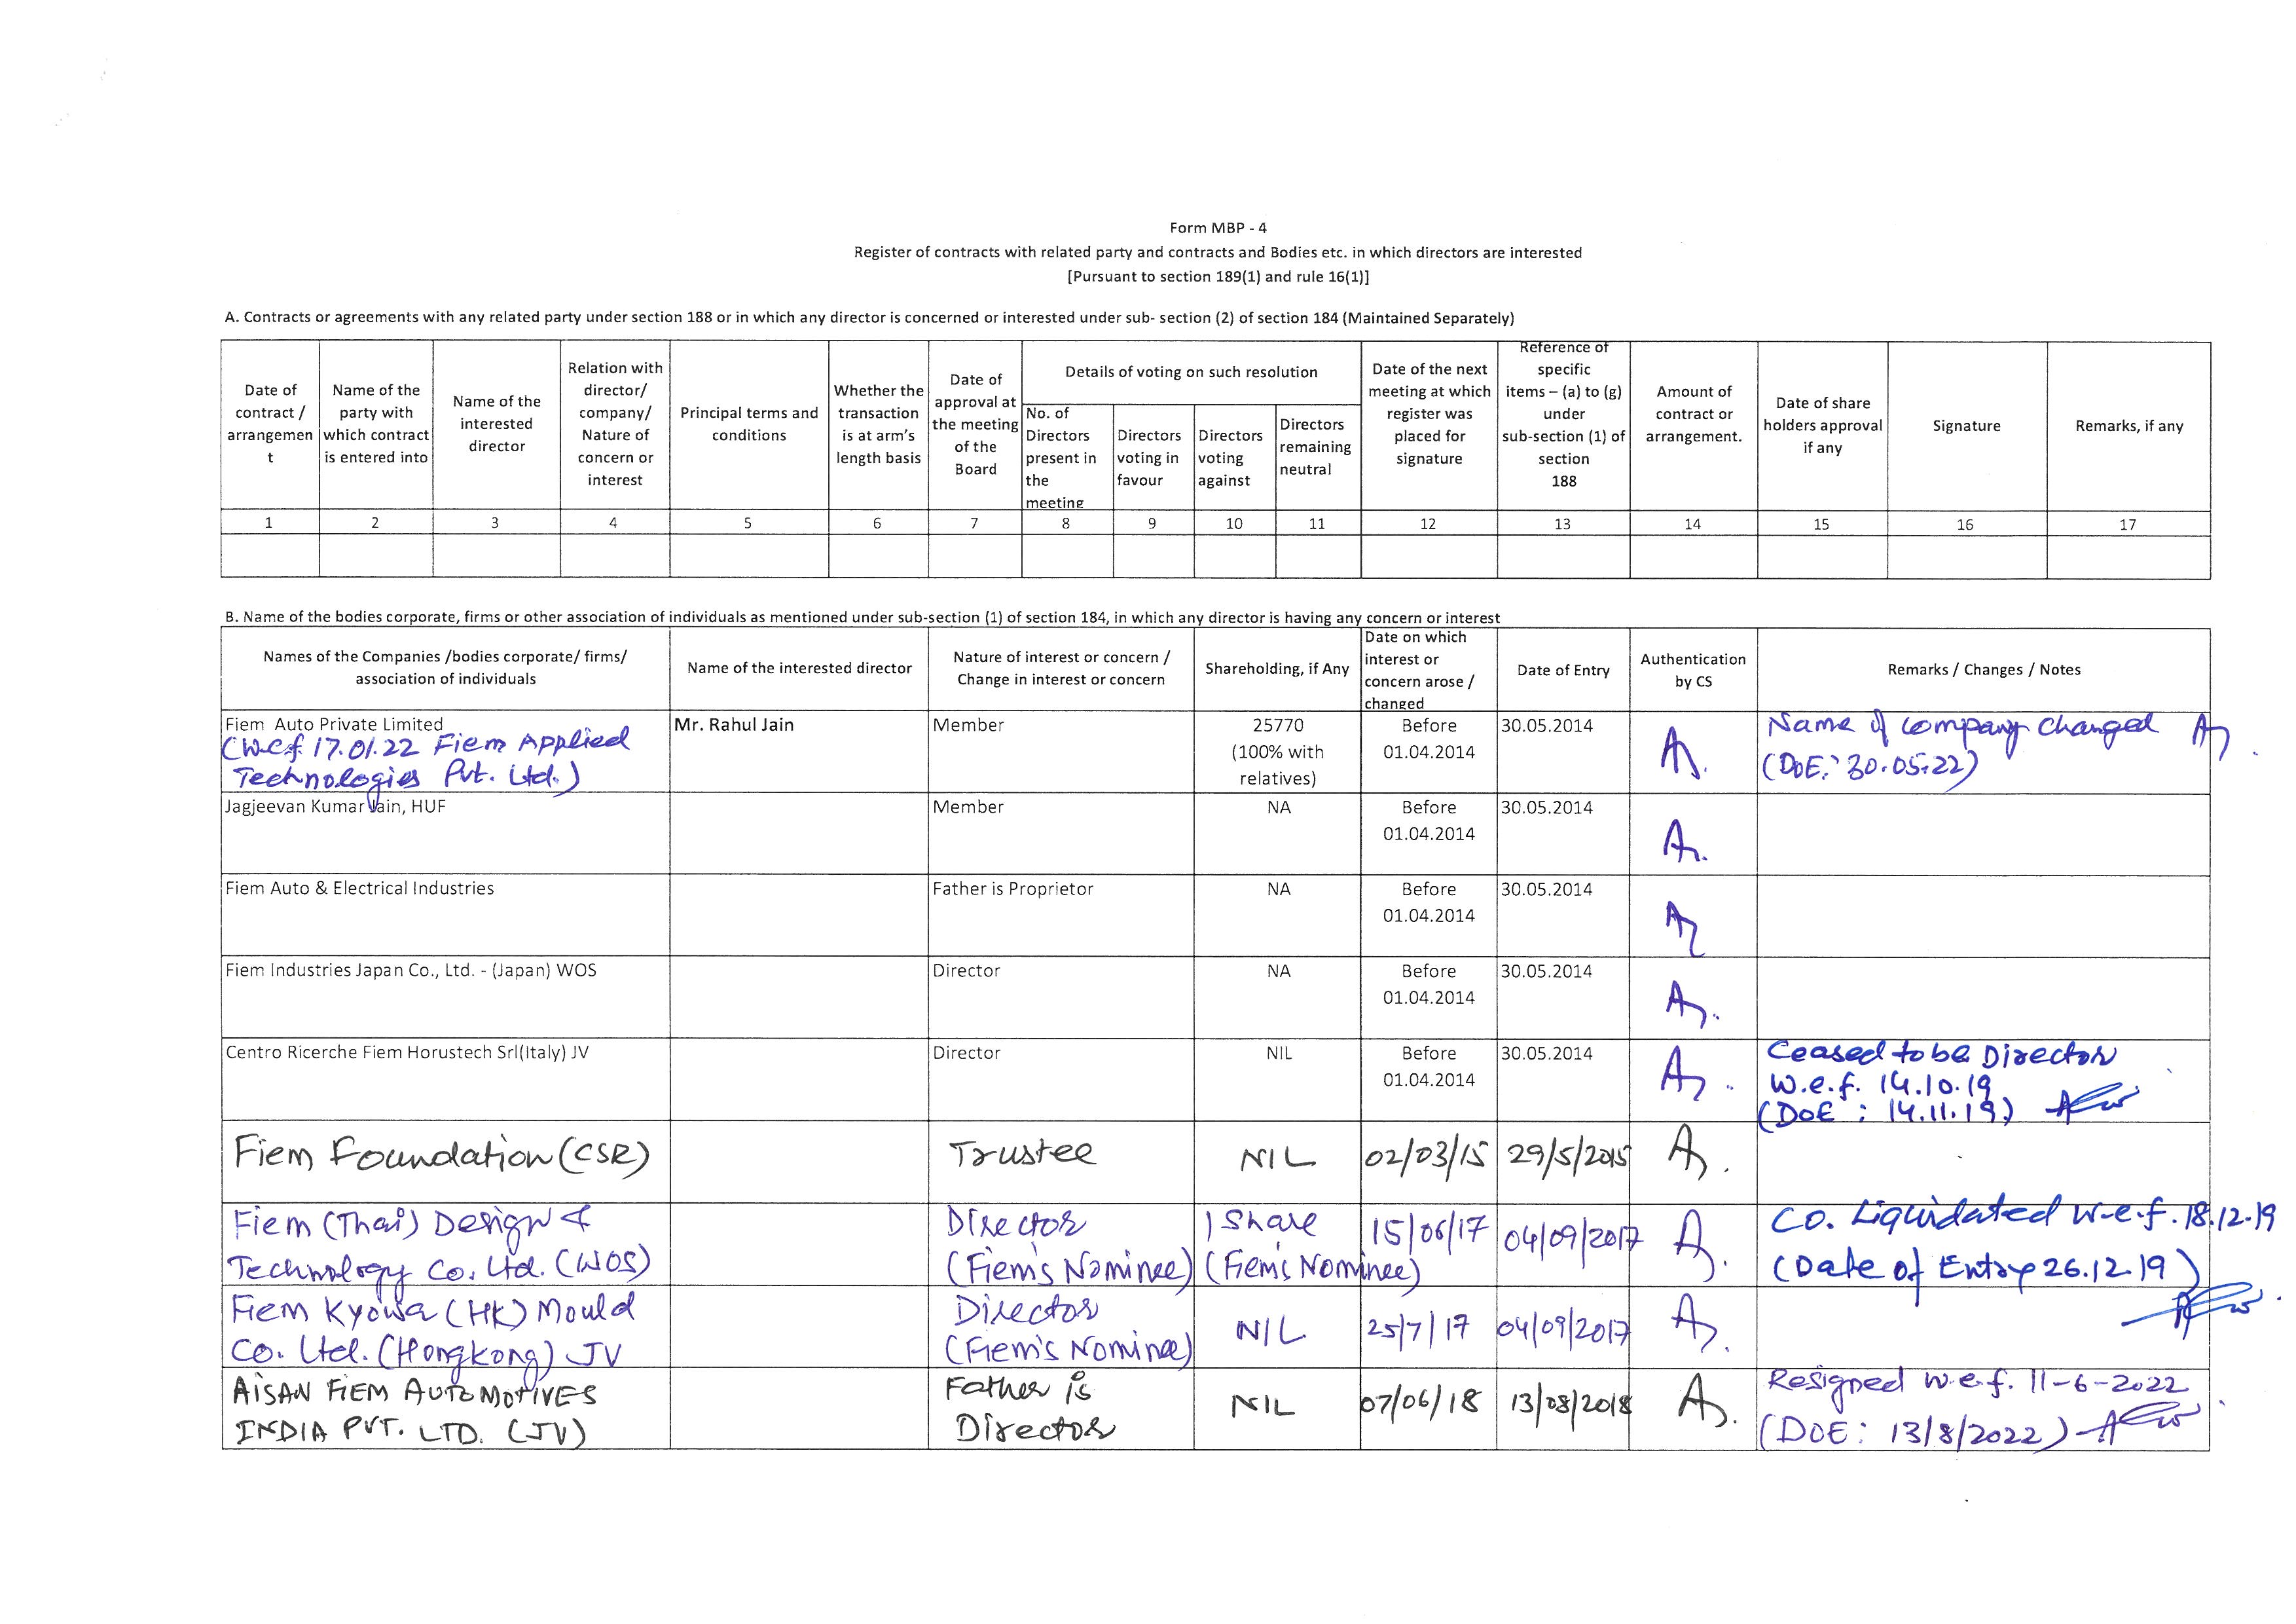 Form MBP - 4
Register of contracts with related party and contracts and Bodies etc. in which directors are interested
[Pursuant to section 189(1) and rule 16(1)]
A. Contracts or agreements with any related party under section 188 or in which any director is concerned or interested under sub- section (2) of section 184 (Maintained Separately)
Date of
contract /
arrangemen
t
Name of the
party with
which contract
is entered into
Name of the
interested
director
Relation with
director/
company/
Nature of
concern or
interest
Principal terms and
conditions
Whether the
transaction
is at arm's
length basis
Date of
approval at
the meeting
of the
Board
Details of voting on such resolution
No. of
Directors
present in
the
meeting
Directors
voting in
favour
Directors
voting
against
Directors
remaining
neutral
Date of the next
meeting at which
register was
placed for
signature
Reference of
specific
items – (a) to (g)
under
sub-section (1) of
section
188
Amount of
contract or
arrangement.
Date of share
holders approval
if any
Signature
Remarks, if any
1 2 3 4 5 6 7 8 9 10 11 12 13 14 15 16 17
B. Name of the bodies corporate, firms or other association of individuals as mentioned under sub-section (1) of section 184, in which any director is having any concern or interest
Names of the Companies /bodies corporate/ firms/
association of individuals
Name of the interested director
Nature of interest or concern /
Change in interest or concern
Shareholding, if Any
Date on which
interest or
concern arose /
changed
Date of Entry
Authentication
by CS
Remarks / Changes / Notes
Fiem Auto Private Limited
(w.e.f 17.01.22 Fiem Applied
Technologies Pvt. Ltd.)
Mr. Rahul Jain
Member
25770
(100% with
relatives)
Before
01.04.2014
30.05.2014
Name of company changed
(DOE: 30.05.22)
Jagjeevan Kumar Jain, HUF
Member
NA
Before
01.04.2014
30.05.2014
Fiem Auto & Electrical Industries
Father is Proprietor
NA
Before
01.04.2014
30.05.2014
Fiem Industries Japan Co., Ltd. - (Japan) WOS
Director
NA
Before
01.04.2014
30.05.2014
Centro Ricerche Fiem Horustech Srl(Italy) JV
Director
NIL
Before
01.04.2014
30.05.2014
Ceased to be Director
w.e.f. 14.10.19
(DOE : 14.11.19)
Fiem Foundation (CSR)
Trustee
NIL
02/03/15
29/5/2015
Fiem (Thai) Design &
Technology Co. Ltd. (WOS)
Director
(Fiem's Nominee)
1 Share
(Fiem's Nominee)
15/06/17
04/09/2017
Co. Liquidated w.e.f. 18.12.19
(Date of Entry 26.12.19)
Fiem Kyowa (HK) Mould
Co. Ltd. (Hongkong) JV
Director
(Fiem's Nominee)
NIL
25/7/17
04/09/2017
AISAN FIEM AUTOMOTIVES
INDIA PVT. LTD. (JV)
Father is
Director
NIL
07/06/18
13/08/2018
Resigned w.e.f. 11-6-2022
(DOE: 13/8/2022)